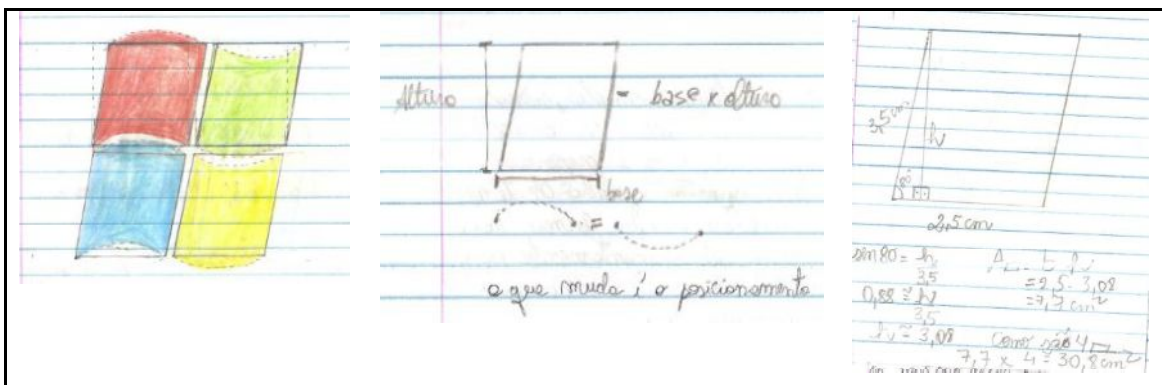 Altura
= base x altura
base
=
o que muda é o posicionamento
3,5 cm
h
80°
2,5 cm
sin 80 = h
3,5
0,88 ≅ h
3,5
h ≅ 3,08
= 2,5 . 3,08
= 7,7 cm²
como são 4
7,7 x 4 = 30,8 cm²